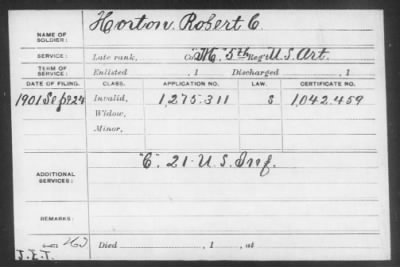 NAME OF SOLDIER: Horton Robert C.
SERVICE: Late rank, Co. "M", 5th Reg't U.S. Art.
TERM OF SERVICE: Enlisted , 1 Discharged , 1
DATE OF FILING. CLASS. APPLICATION NO. LAW. CERTIFICATE NO.
1901 Sep 24 Invalid, 1,275.311 S 1,042.459
Widow,
Minor,
ADDITIONAL SERVICES: "C". 21 U.S. Inf.
REMARKS:
Died , 1 , at
J.E.T.